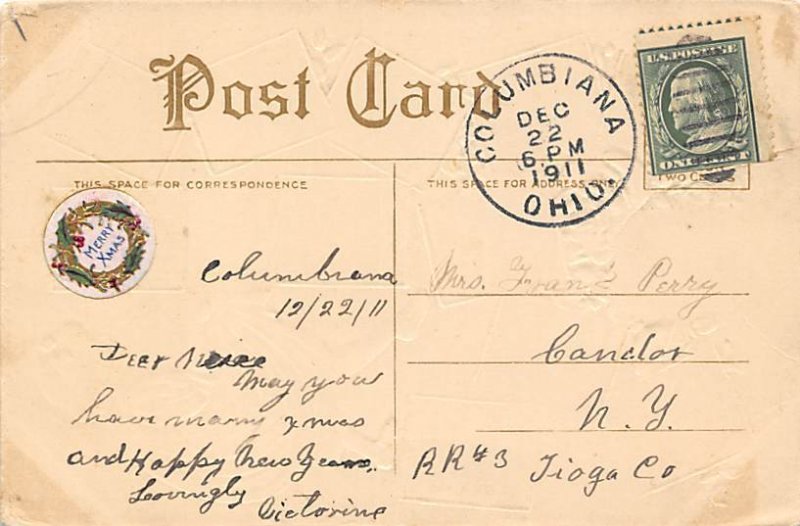 Post Card
COLUMBIANA
DEC
22
6 PM
1911
OHIO.
U.S. POSTAGE
ONE CENT
THIS SPACE FOR CORRESPONDENCE
THIS SPACE FOR ADDRESS ONLY
TWO
MERRY
XMAS
Columbiana
12/22/11
Dear Neice
May you
have many xmas
and Happy New Years.
Lovingly
Victorine
Mrs. Frank Perry
Candor
N.Y.
RR#3 Tioga Co